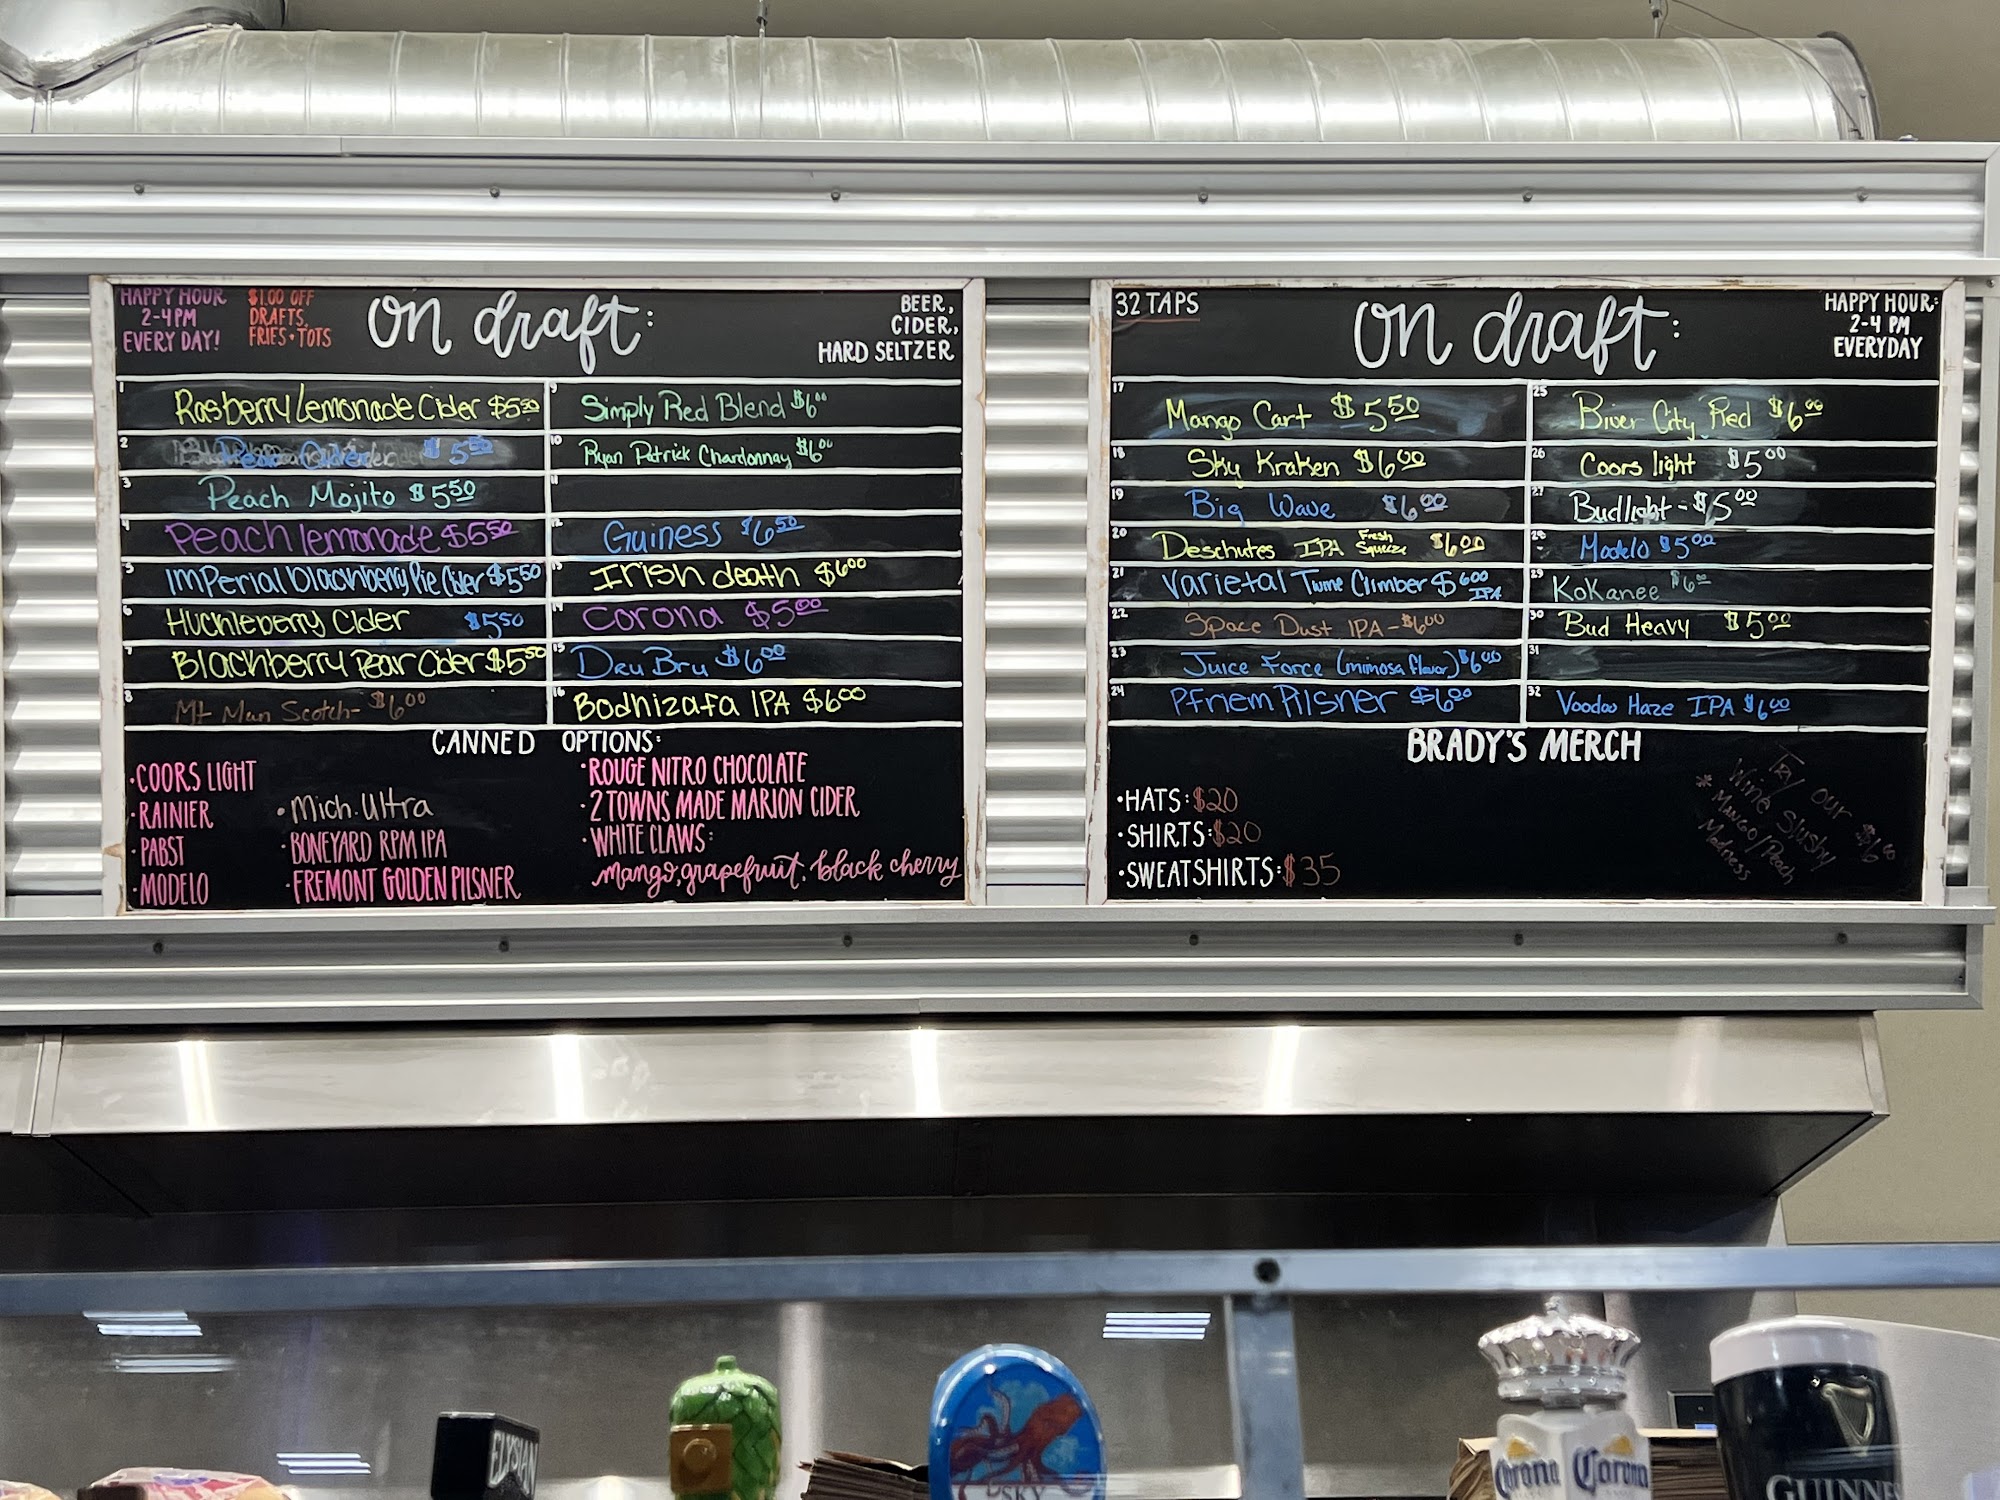 HAPPY HOUR
2-4PM
EVERY DAY!
$1.00 OFF
DRAFTS,
FRIES + TOTS
on draft:
BEER,
CIDER,
HARD SELTZER
1 Rasberry Lemonade Cider $5.50
2 $5.50
3 Peach Mojito $5.50
4 Peach lemonade $5.50
5 Imperial blackberry Pie Cider $5.50
6 Huckleberry Cider $5.50
7 Blackberry Pear Cider $5.50
8 Mt Man Scotch - $6.00
9 Simply Red Blend $6.00
10 Ryan Patrick Chardonnay $6.00
11
12 Guiness $6.50
13 Irish death $6.00
14 Corona $5.00
15 Dru Bru $6.00
16 Bodhizafa IPA $6.00
CANNED OPTIONS:
·COORS LIGHT
·RAINIER
·PABST
·MODELO
·Mich. Ultra
·BONEYARD RPM IPA
·FREMONT GOLDEN PILSNER
·ROUGE NITRO CHOCOLATE
·2 TOWNS MADE MARION CIDER
·WHITE CLAWS:
mango, grapefruit, black cherry
32 TAPS
on draft:
HAPPY HOUR:
2-4 PM
EVERYDAY
17 Mango Cart $5.50
18 Sky Kraken $6.00
19 Big Wave $6.00
20 Deschutes IPA Fresh Squeeze $6.00
21 Varietal Twine Climber $6.00 IPA
22 Space Dust IPA - $6.00
23 Juice Force (mimosa flavor) $6.00
24 Pfriem Pilsner $6.00
25 River City Red $6.00
26 Coors light $5.00
27 Budlight - $5.00
28 Modelo $5.00
29 Kokanee $6.00
30 Bud Heavy $5.00
31
32 Voodoo Haze IPA $6.00
BRADY'S MERCH
·HATS: $20
·SHIRTS: $20
·SWEATSHIRTS: $35
Try our
Wine Slushy $6.00
* Mango/Peach
Madness
ELYSIAN
SKY
Corona Corona
GUINNE